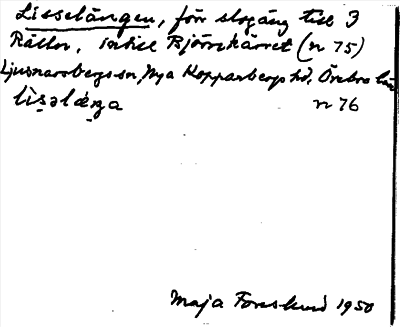 Lisselängen, förr slogäng till 3
Rällor, intill Björnkärret (n 75)
Ljusnarsbergs sn, Nya Kopparbergs hd, Örebro län
lìsəlæŋa n 76
Maja Forslund 1950